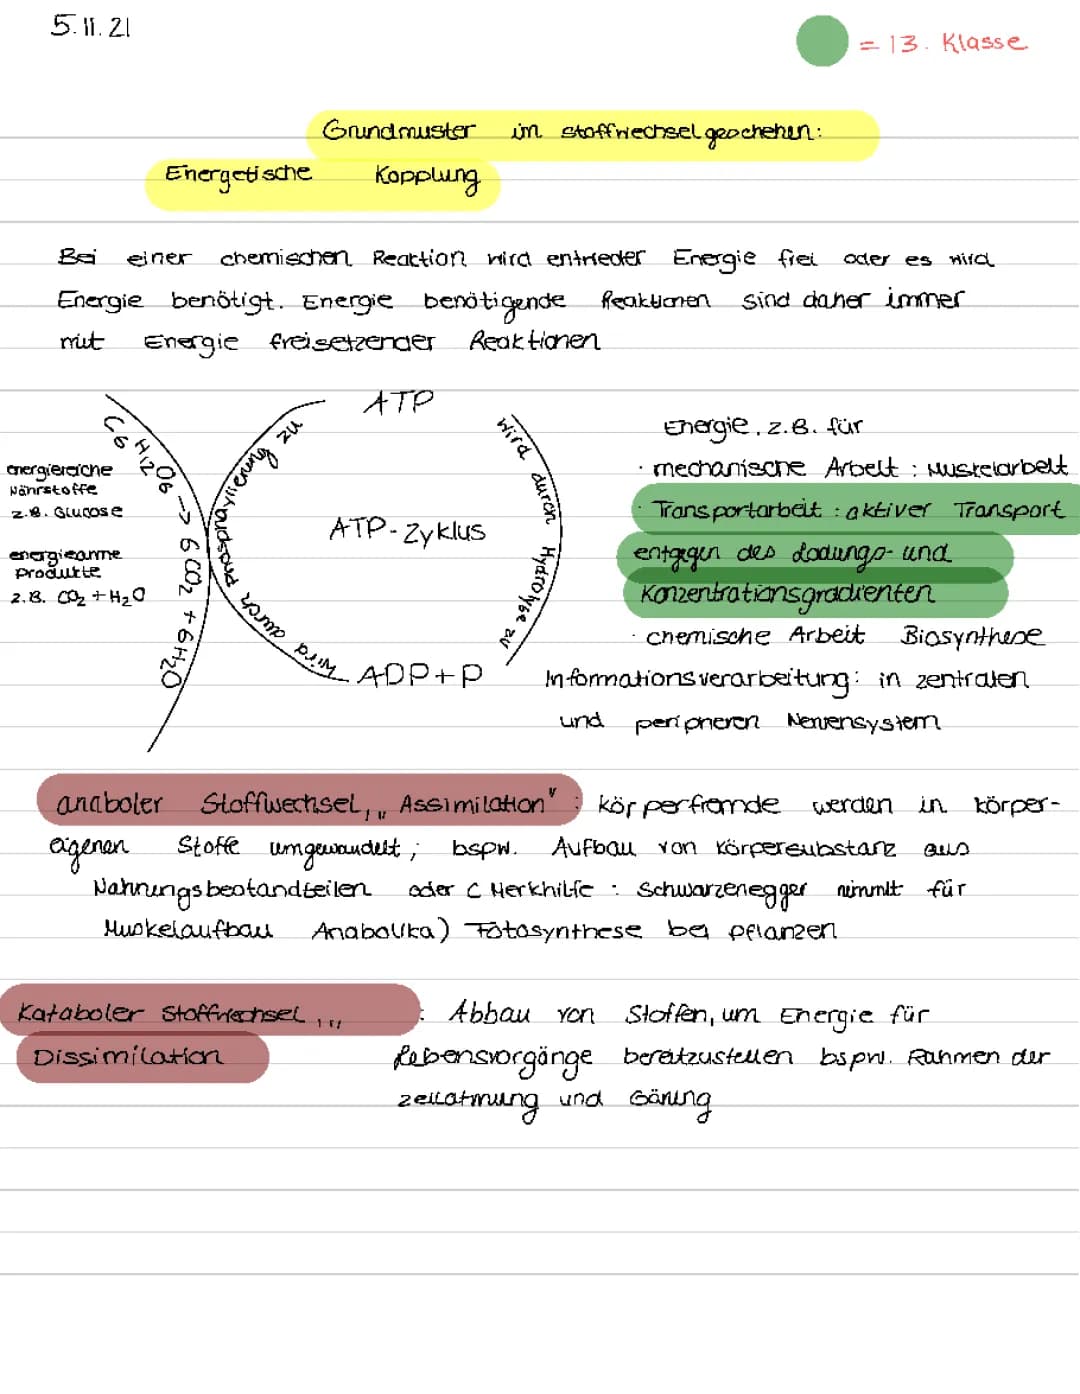 5.11.21
= 13. Klasse
Grundmuster im stoffwechselgeschehen:
Energetische Kopplung
Bei einer chemischen Reaktion wird entweder Energie frei oder es wird
Energie benötigt. Energie benötigende Reaktionen sind daher immer
mit Energie freisetzender Reaktionen
ATP
wird durch Hydrolyse zu
ADP+P
wird durch Phosphorylierung zu
ATP-Zyklus
C6H12O6 -> 6CO2 + 6H2O
energiereiche
Nährstoffe
z.B. Glucose
energiearme
Produkte
z.B. CO2 + H2O
Energie, z.B. für
· mechanische Arbeit : Muskelarbeit
· Transportarbeit : aktiver Transport
entgegen des Ladungs- und
Konzentrationsgradienten
· chemische Arbeit Biosynthese
Informationsverarbeitung: in zentralen
und peripheren Nervensystem
anaboler Stoffwechsel, „Assimilation" : körperfremde werden in körper-
eigenen Stoffe umgewandelt, bspw. Aufbau von Körpersubstanz aus
Nahrungsbestandteilen oder ( Merkhilfe : Schwarzenegger nimmt für
Muskelaufbau Anabolika) Fotosynthese bei pflanzen
Kataboler Stoffwechsel, „ : Abbau von Stoffen, um Energie für
Dissimilation Lebensvorgänge bereitzustellen bspw. Rahmen der
zellatmung und Gärung